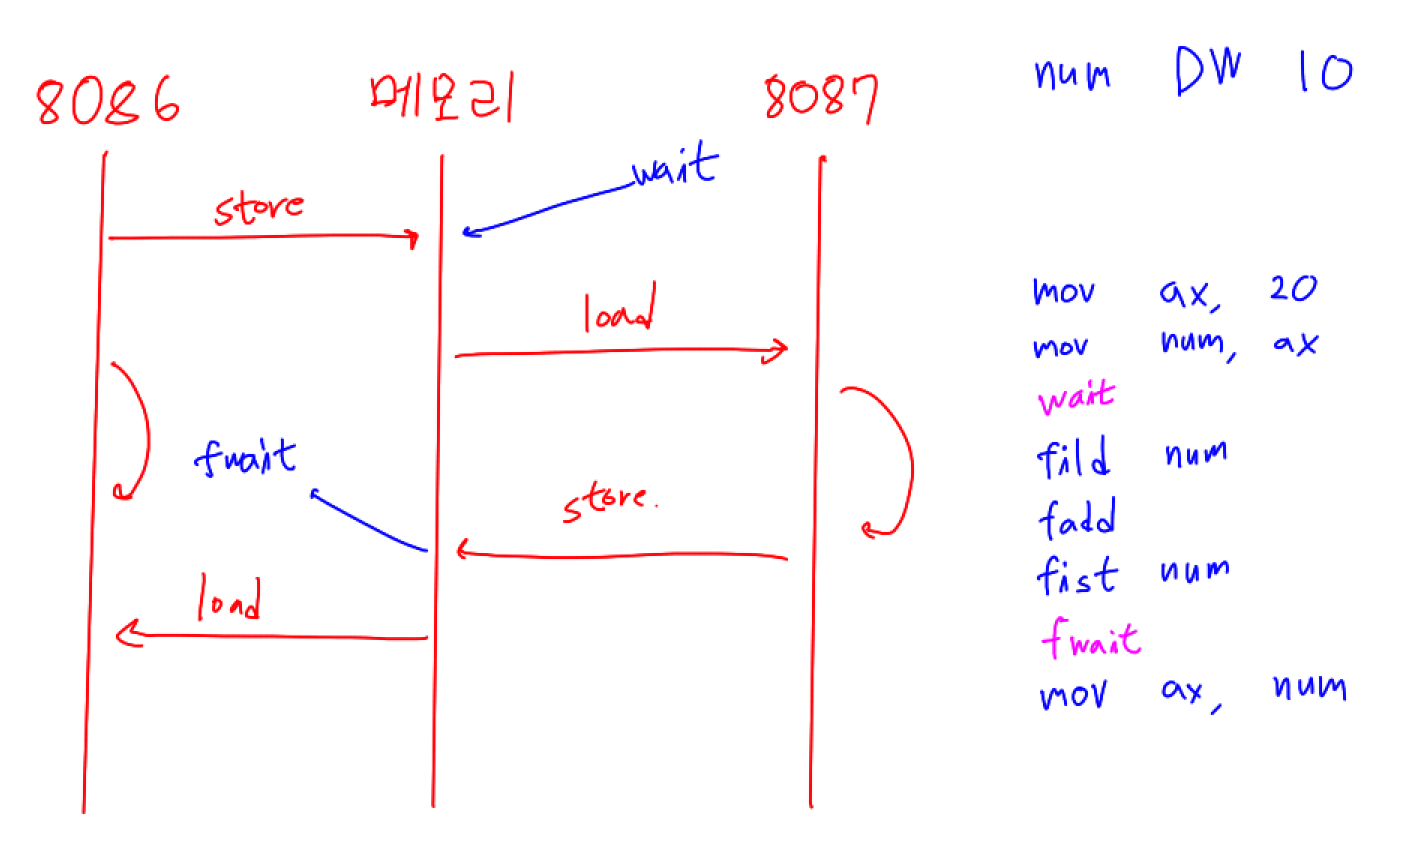 8086 메모리 8087
wait
store
load
fwait
store.
load
num DW 10
mov ax, 20
mov num, ax
wait
fild num
fadd
fist num
fwait
mov ax, num